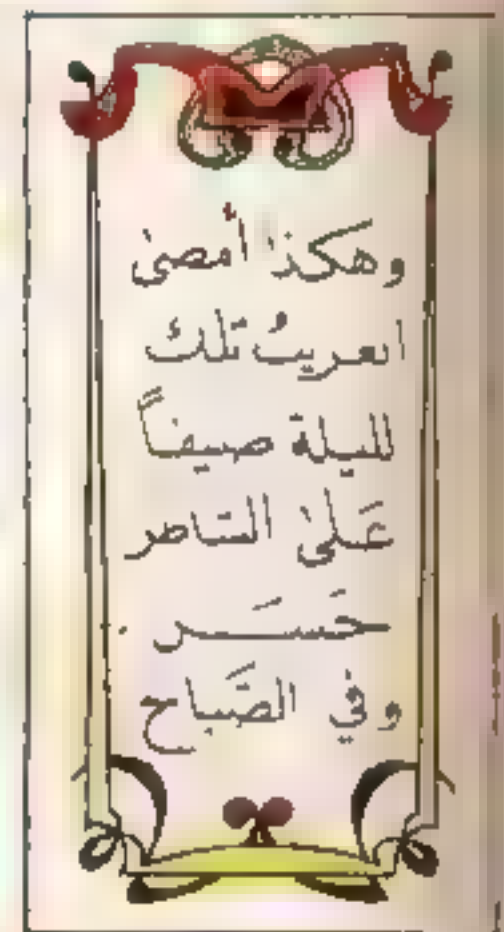 وهكذا أمضى
الغريبُ تلك
الليلة ضيفاً
عَلىٰ الشاطر
حَسَن .
وفي الصَّباح